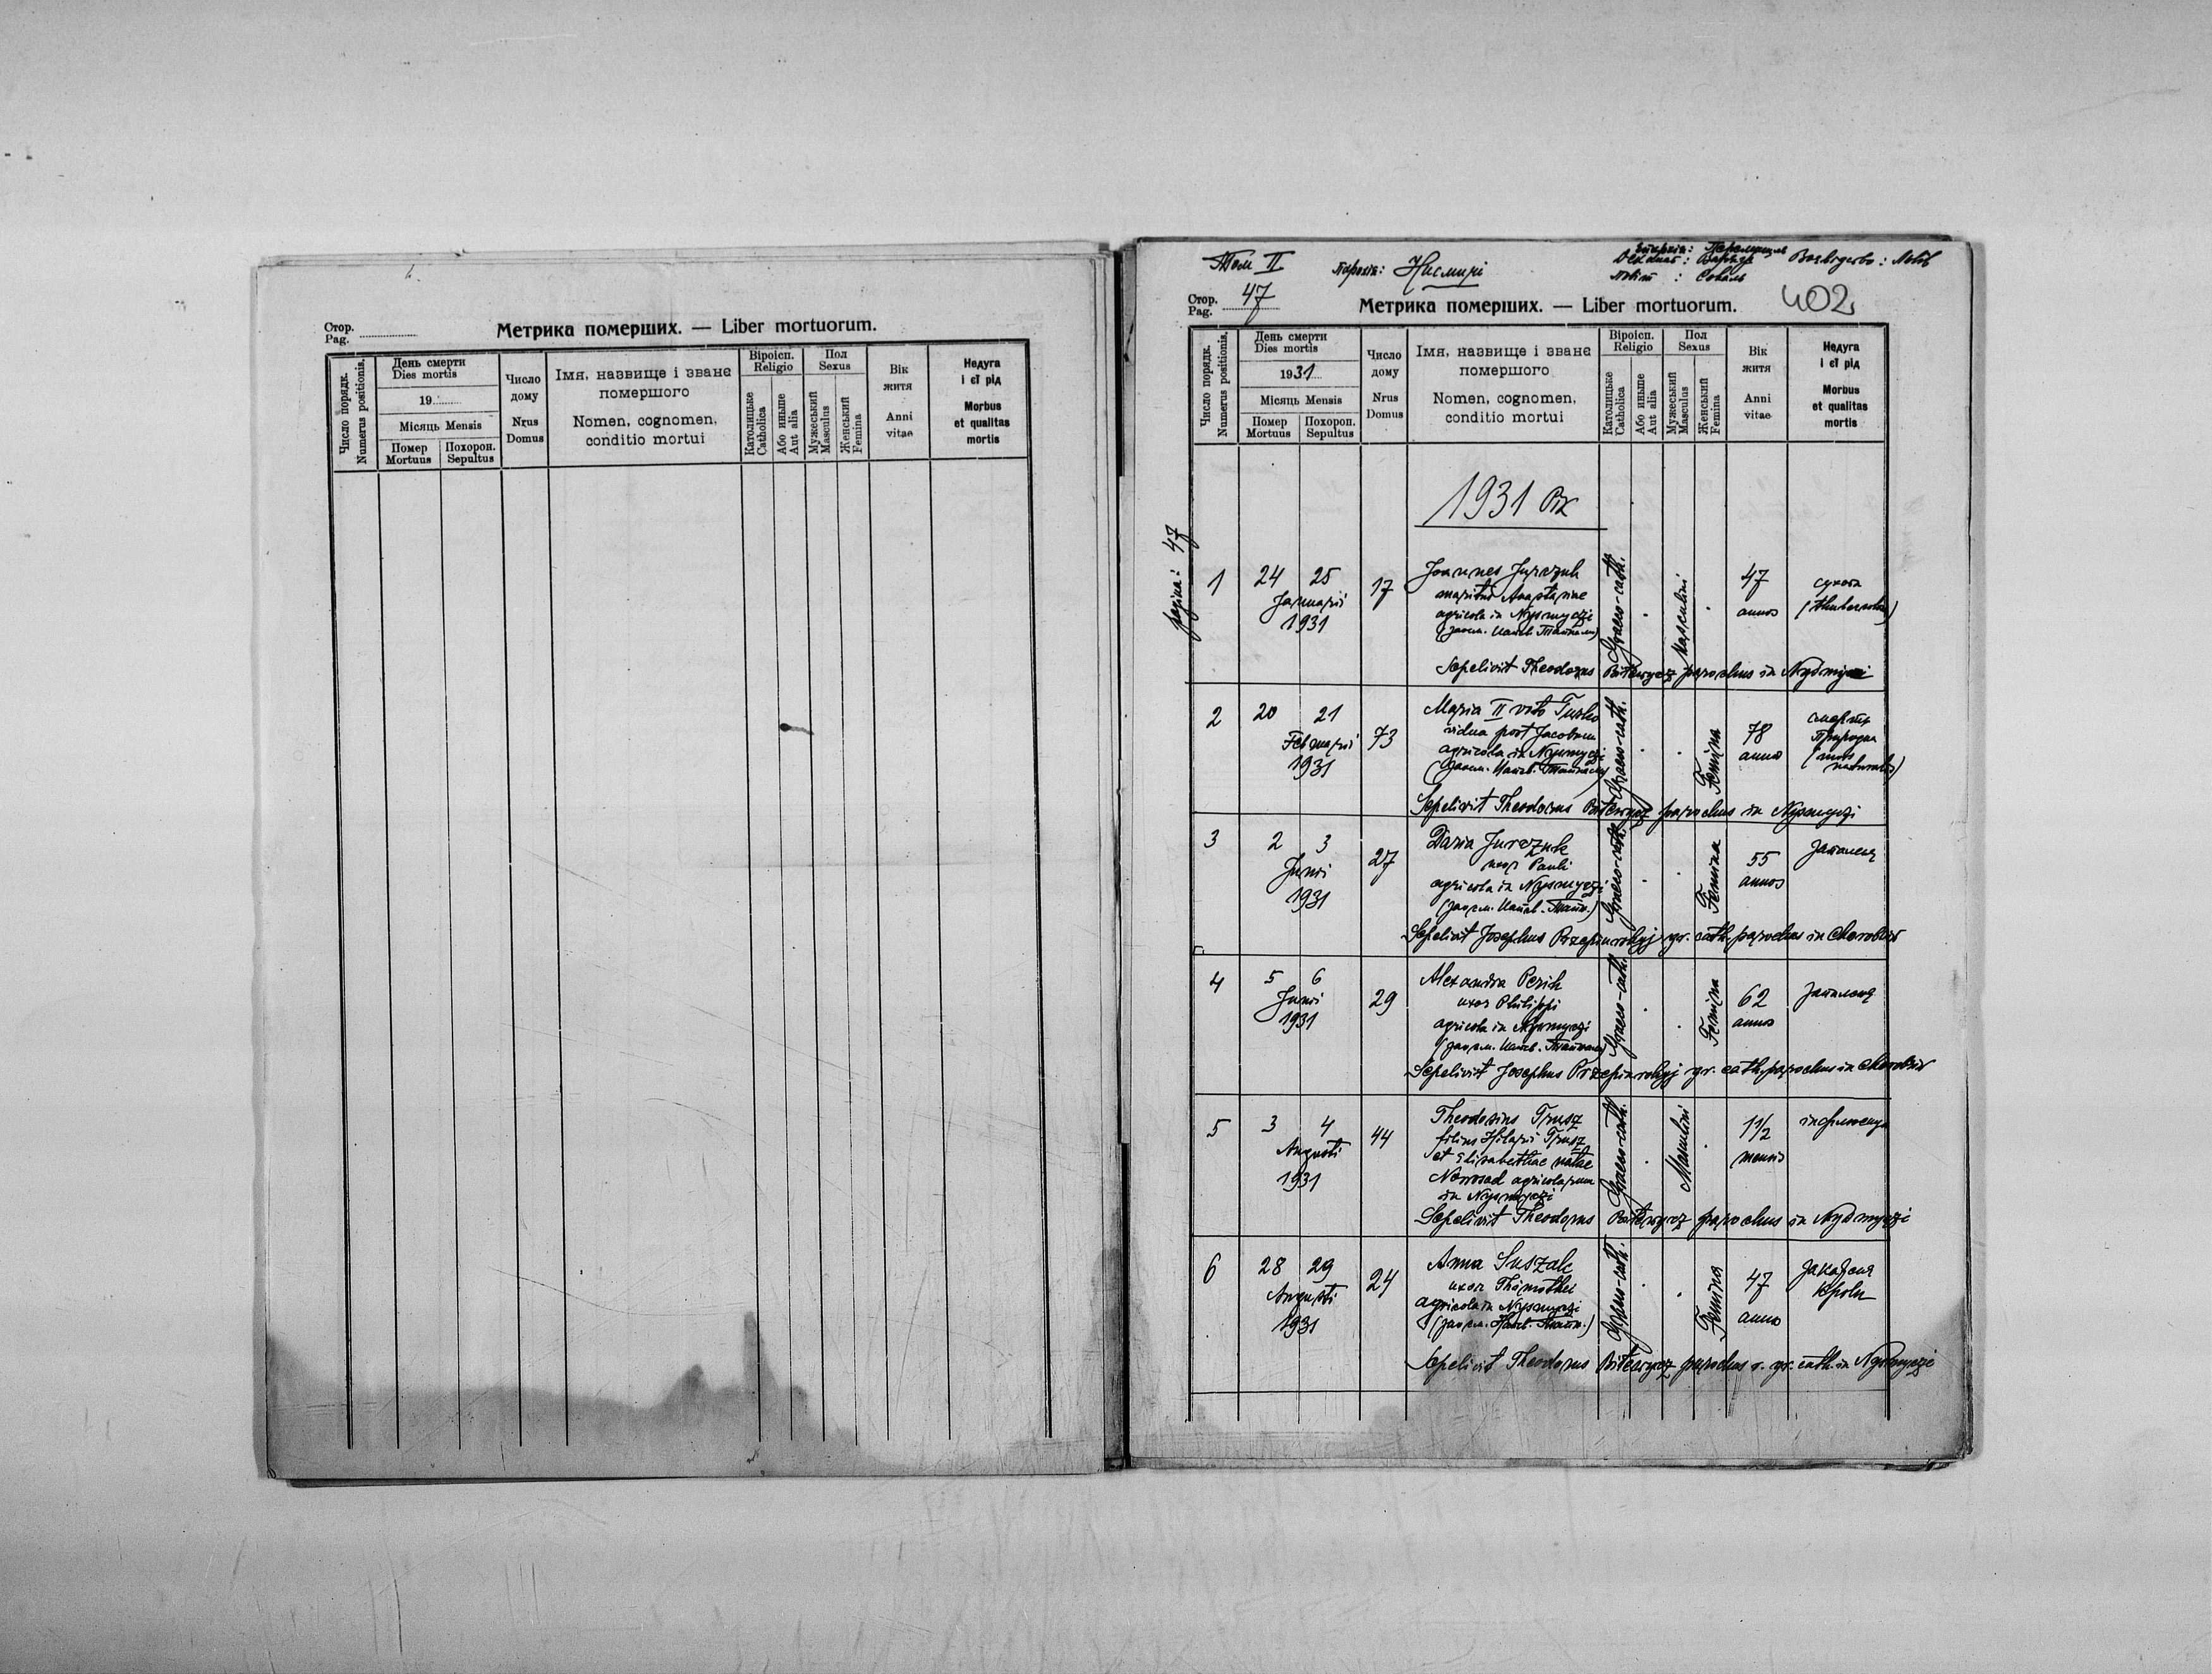 Стор.
Pag.
Метрика померших. — Liber mortuorum.
Число порядк.
Numerus positionis.
День смерти
Dies mortis
19
Місяць Mensis
Помер
Mortuus
Похорон.
Sepultus
Число
дому
Nrus
Domus
Імя, назвище і зване
помершого
Nomen, cognomen,
conditio mortui
Віроісп.
Religio
Католицьке
Catholica
Або иньше
Aut alia
Пол
Sexus
Мужеський
Masculus
Женський
Femina
Вік
житя
Anni
vitae
Недуга
і єї рід
Morbus
et qualitas
mortis
Том II
парохія: Нисмичі
Деканат:
Повіт : Сокаль
Стор.
Pag. 47
Метрика померших. — Liber mortuorum.
402
Число порядк.
Numerus positionis.
День смерти
Dies mortis
1931
Місяць Mensis
Помер
Mortuus
Похорон.
Sepultus
Число
дому
Nrus
Domus
Імя, назвище і зване
помершого
Nomen, cognomen,
conditio mortui
Віроісп.
Religio
Католицьке
Catholica
Або иньше
Aut alia
Пол
Sexus
Мужеський
Masculus
Женський
Femina
Вік
житя
Anni
vitae
Недуга
і єї рід
Morbus
et qualitas
mortis
1931 Рік
pagina: 47
1
24 25
Januarii
1931
17
Joannes Jurczuk
maritus Anastasiae
agricola in Nysmyczi
Graeco-cath.
Masculini
47
annos
сухота
Sepelivit Theodorus parochus in Nysmyczi
2
20 21
Februarii
1931
73
Maria II voto Turko
vidua post Jacobum
agricola in Nysmyczi
Graeco-cath.
Femina
78
annos
смерть
природна
(mors
naturalis)
Sepelivit Theodorus parochus in Nysmyczi
3
2 3
Junii
1931
27
Daria Jurczuk
uxor Pauli
agricola in Nysmyczi
Graeco-cath.
Femina
55
annos
запаленя
Sepelivit Josephus gr. cath. parochus in
4
5 6
Junii
1931
29
Alexandra Perih
uxor Philippi
agricola in Nysmyczi
Graeco-cath.
Femina
62
annos
запаленя
Sepelivit Josephus gr. cath. parochus in
5
3 4
Augusti
1931
44
Theodosius Trusz
filius Hilarii Trusz
et Elisabethae natae
Nowosad agricolarum
in Nysmyczi
Graeco-cath.
Masculini
1 1/2
mensis
інфлюенца
Sepelivit Theodorus parochus in Nysmyczi
6
28 29
Augusti
1931
24
Anna Suszak
uxor Thimothei
agricola in Nysmyczi
Graeco-cath.
Femina
47
annos
закаженя
крови
Sepelivit Theodorus parochus r. gr. cath. in Nysmyczi